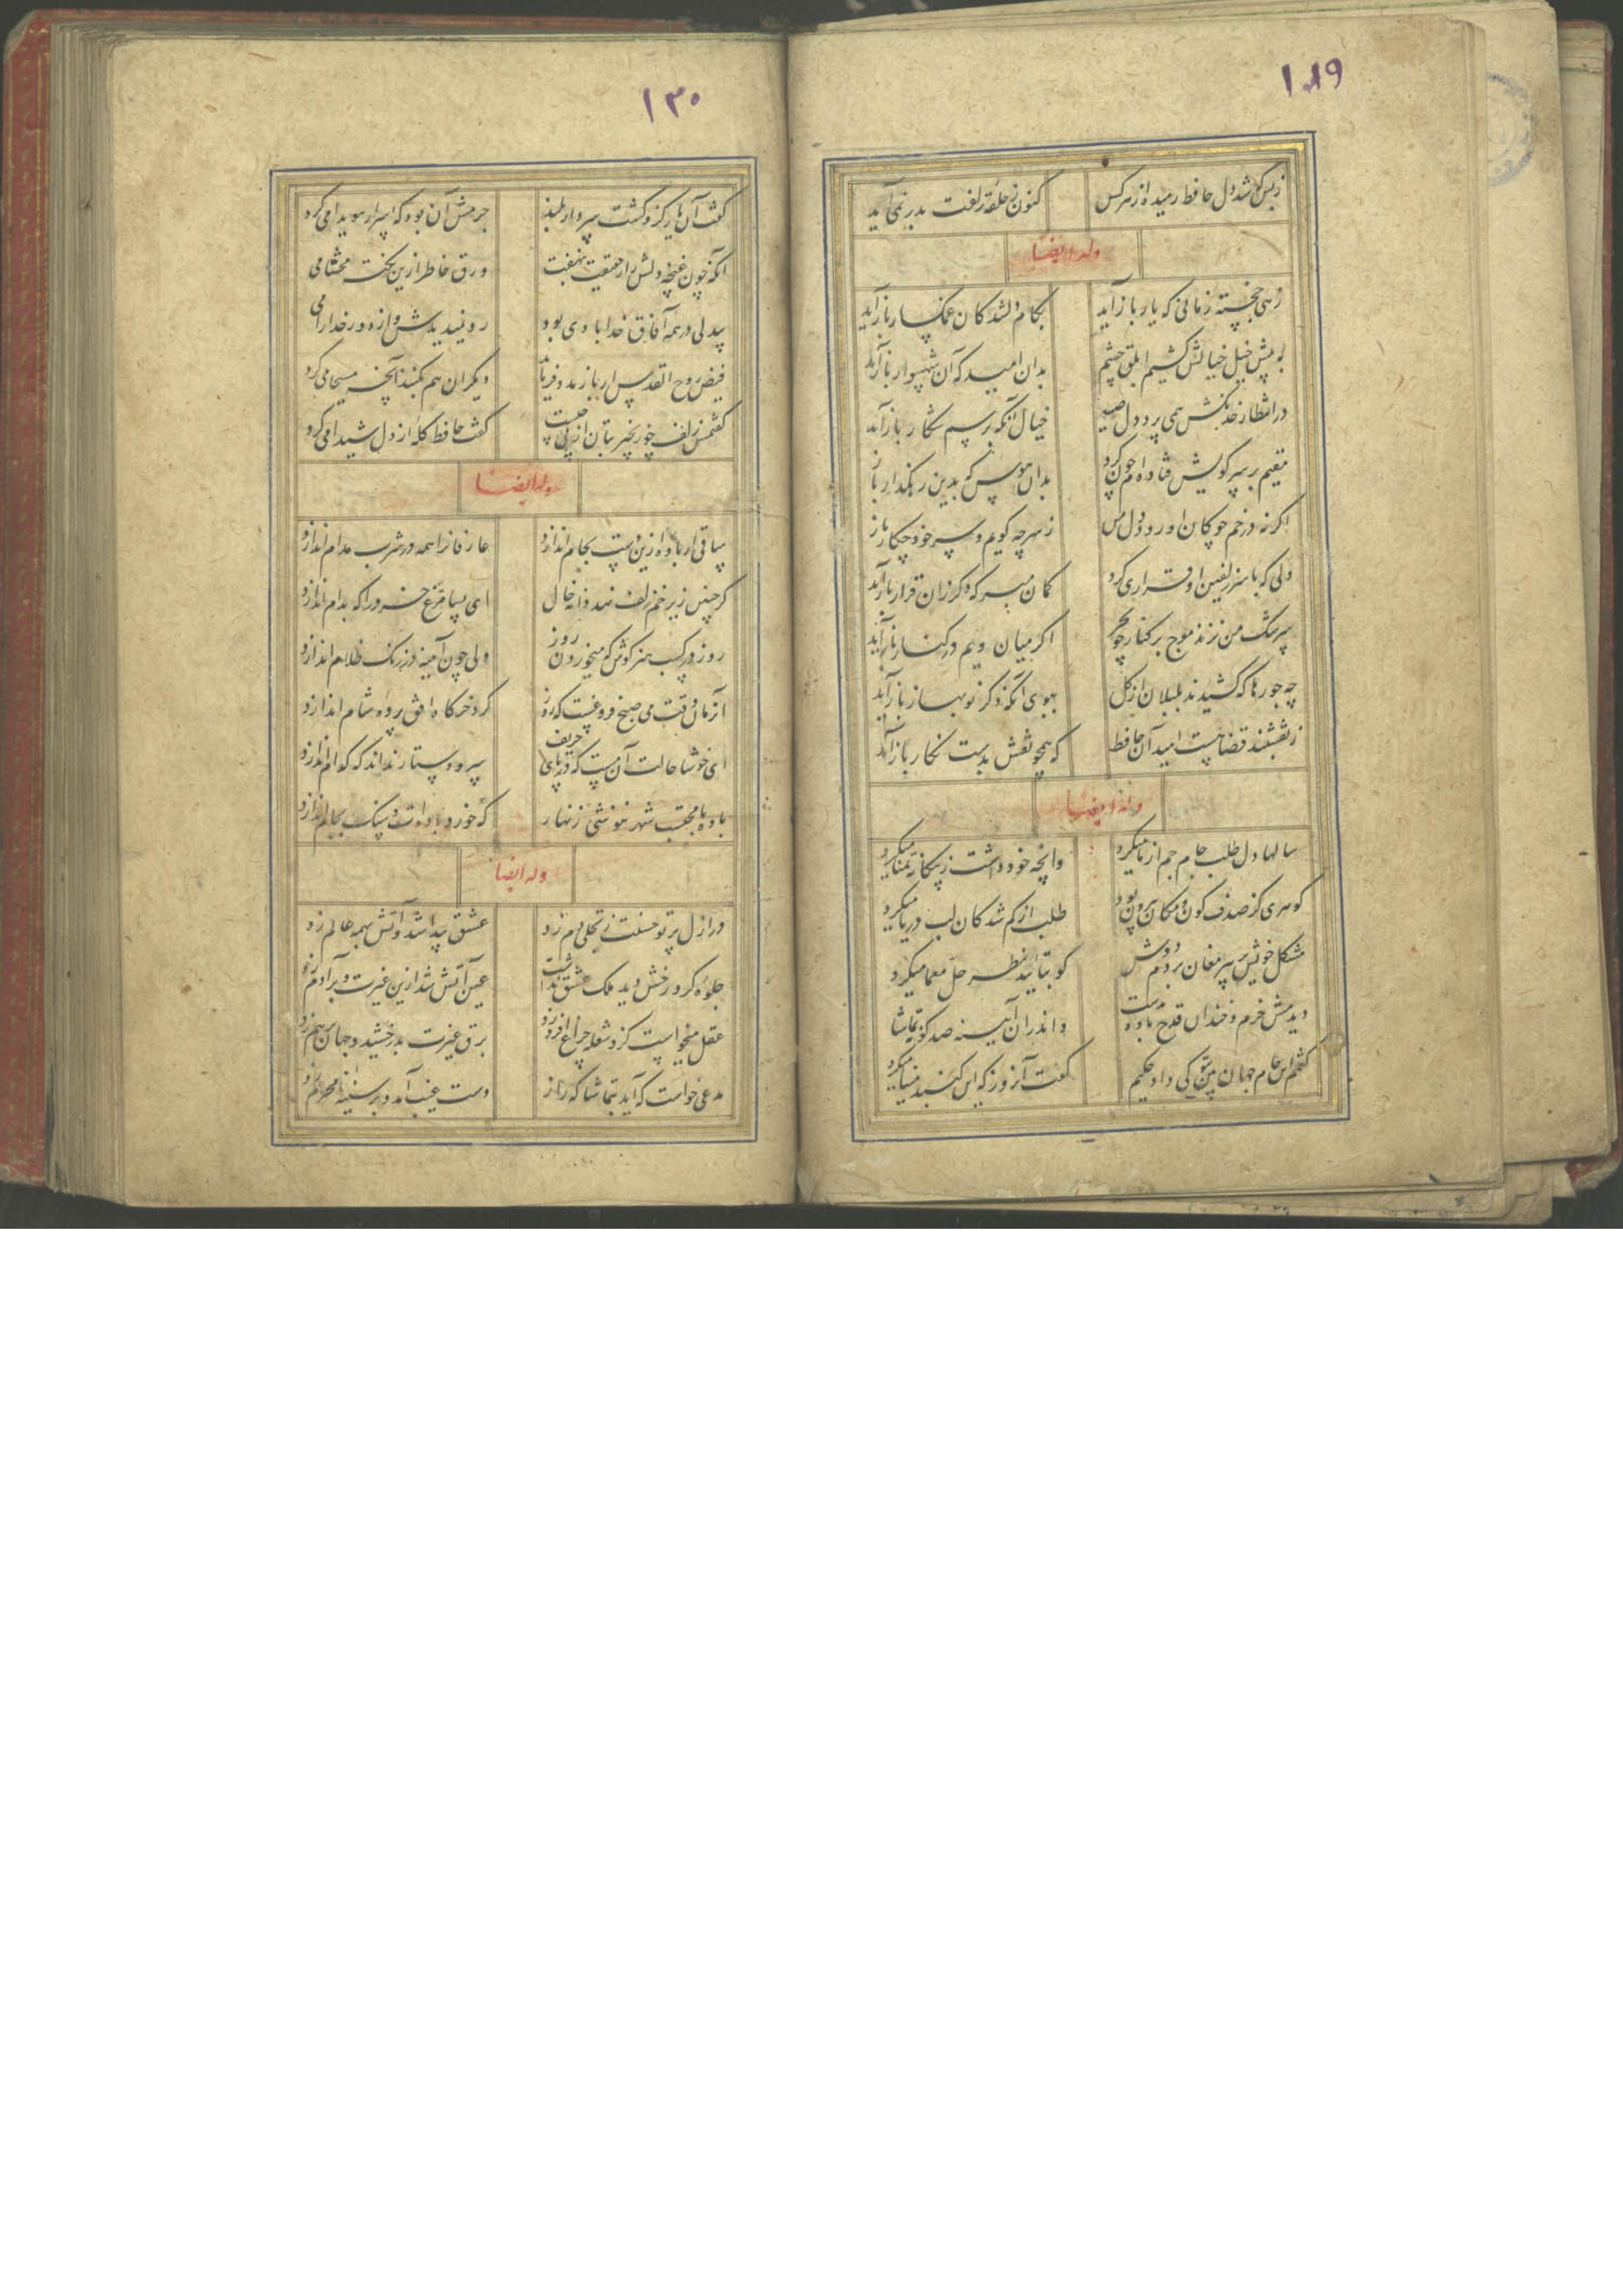 ۱۲۹
ز بس که شد دل حافظ رمیده از هر کس کنون ز حلقه زلفت بدر نمی آید
وله ایضا
زهی خجسته زمانی که یار بازآید بکام دلشدکان غمکسار بازآید
به پیش خیل خیالش کشیم ابلق چشم بدان امید که آن شهسوار بازآید
در انتظار خدنکش همی پرد دل صید خیال آنکه برسم شکار بازآید
مقیم بر سر کویش فتاده ام چون کرد بدان هوس که بدین رهکذار باز
اکر نه در خم چوکان او رود دل من ز سر چه کویم و سر خود چکار باز
دلی که با سر زلفین او قراری کرد کمان مبر که دکر زان قرار بازآید
سرشک من نزند موج بر کنار چو بحر اکر میان ویم در کنار بازآید
چه جورها که کشیدند بلبلان از کل ببوی آنکه دکر نوبهار بازآید
ز نقشبند قضا هست امید آن حافظ که همچو نقش بدست نکار بازآید
وله ایضا
سالها دل طلب جام جم از ما میکرد وانچه خود داشت ز بیکانه تمنا میکرد
کوهری کز صدف کون و مکان بیرون بود طلب از کم شدکان لب دریا میکرد
مشکل خویش بر پیر مغان بردم دوش کو بتایید نظر حل معما میکرد
دیدمش خرم و خندان قدح باده بدست واندران آینه صد کونه تماشا
کفتم این جام جهان بین بتو کی داد حکیم کفت آنروز که این کنبد مینا میکرد
۱۳۰
کفت آن یار کزو کشت سر دار بلند جرمش آن بود که اسرار هویدا می کرد
آنکه چون غنچه دلش راز حقیقت بنهفت ورق خاطر ازین نکته محشا می
بیدلی در همه آفاق خدا با وی بود او نمیدیدش و از دور خدا را می
فیض روح القدس ار باز مدد فرماید دیکران هم بکنند آنچه مسیحا می کرد
کفتمش زلف چو زنجیر بتان از پی چیست کفت حافظ کله از دل شیدا می کرد
وله ایضا
ساقی ار باده ازین دست بجام اندازد عارفانرا همه در شرب مدام اندازد
کر چنین زیر خم زلف نهد دانه خال ای بسا مرغ خرد را که بدام اندازد
روز در کسب هنر کوش که میخوردن روز دل چون آینه در زنک ظلام اندازد
آنزمان وقت می صبح فروغست که روز کرد خرکاه افق پرده شام اندازد
ای خوشا حالت آن مست که در پای حریف سر و دستار نداند که کدام اندازد
باده با محتسب شهر ننوشی زنهار که خورد باده ات و سنک بجام اندازد
وله ایضا
در ازل پرتو حسنت ز تجلی دم زد عشق پیدا شد و آتش بهمه عالم زد
جلوه کرد رخش دید ملک عشق نداشت عین آتش شد ازین غیرت و بر آدم زد
عقل میخواست کزو شعله چراغ افروزد برق غیرت بدرخشید و جهان بر هم زد
مدعی خواست که آید بتماشا که راز دست غیب آمد و بر سینه نامحرم زد